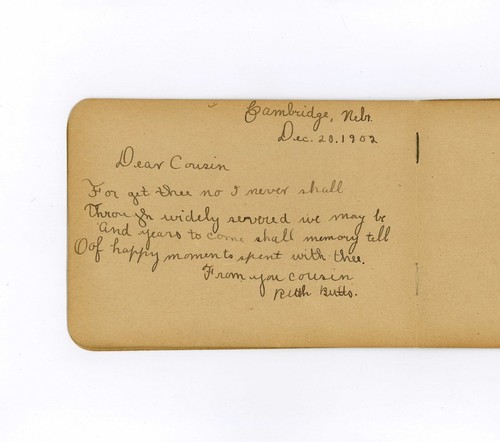 Cambridge, Nebr.
Dec. 28. 1902
Dear Cousin
For get thee no I never shall
Throu gh widely severed we may be
And years to come shall memory tell
Oof happy moments spent with thee.
From you cousin
Ruth Butts.